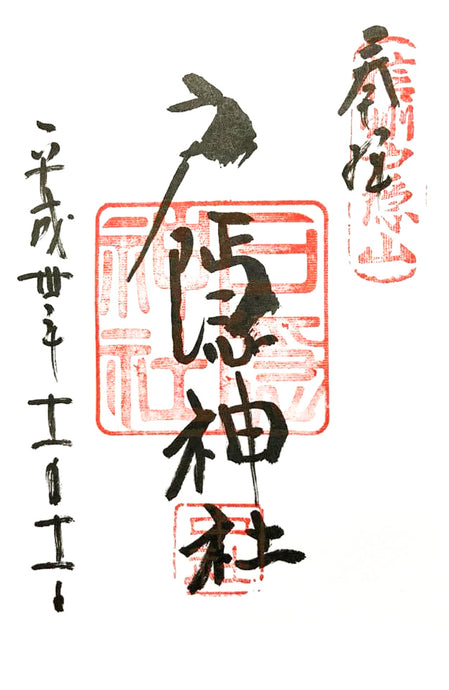 奉拝
信州戸隠山
戸隠神社
戸隠神社
平成卅年十一月十一日